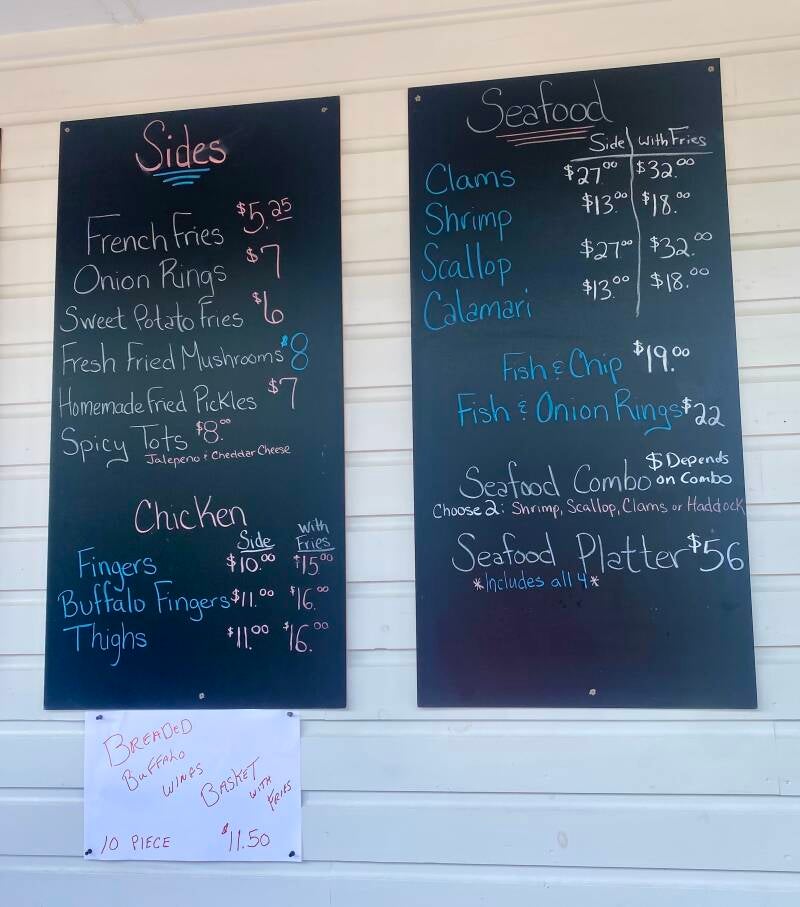 Sides
French Fries $5.25
Onion Rings $7
Sweet Potato Fries $6
Fresh Fried Mushrooms $8
Homemade Fried Pickles $7
Spicy Tots $8.00
Jalepeno & Cheddar Cheese
Chicken
Side With Fries
Fingers $10.00 $15.00
Buffalo Fingers $11.00 $16.00
Thighs $11.00 $16.00
BREADED
BUFFALO
WINGS
BASKET
WITH
FRIES
10 PIECE $11.50
Seafood
Side With Fries
Clams $27.00 $32.00
Shrimp $13.00 $18.00
Scallop $27.00 $32.00
Calamari $13.00 $18.00
Fish & Chip $19.00
Fish & Onion Rings $22
Seafood Combo $ Depends on Combo
Choose 2: Shrimp, Scallop, Clams or Haddock
Seafood Platter $56
*Includes all 4*